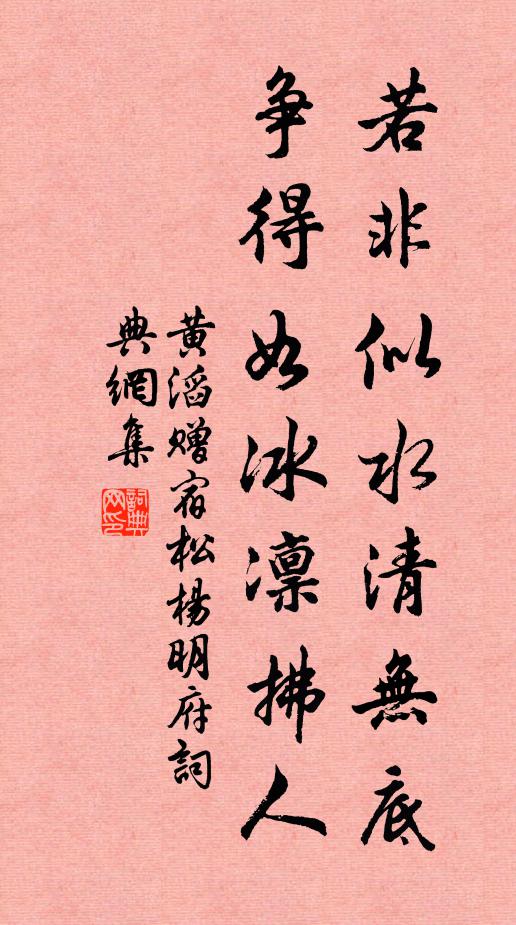 若非似水清無底
争得如冰凛拂人
黄滔赠宿松楊明府詞
典網集
詞典網印